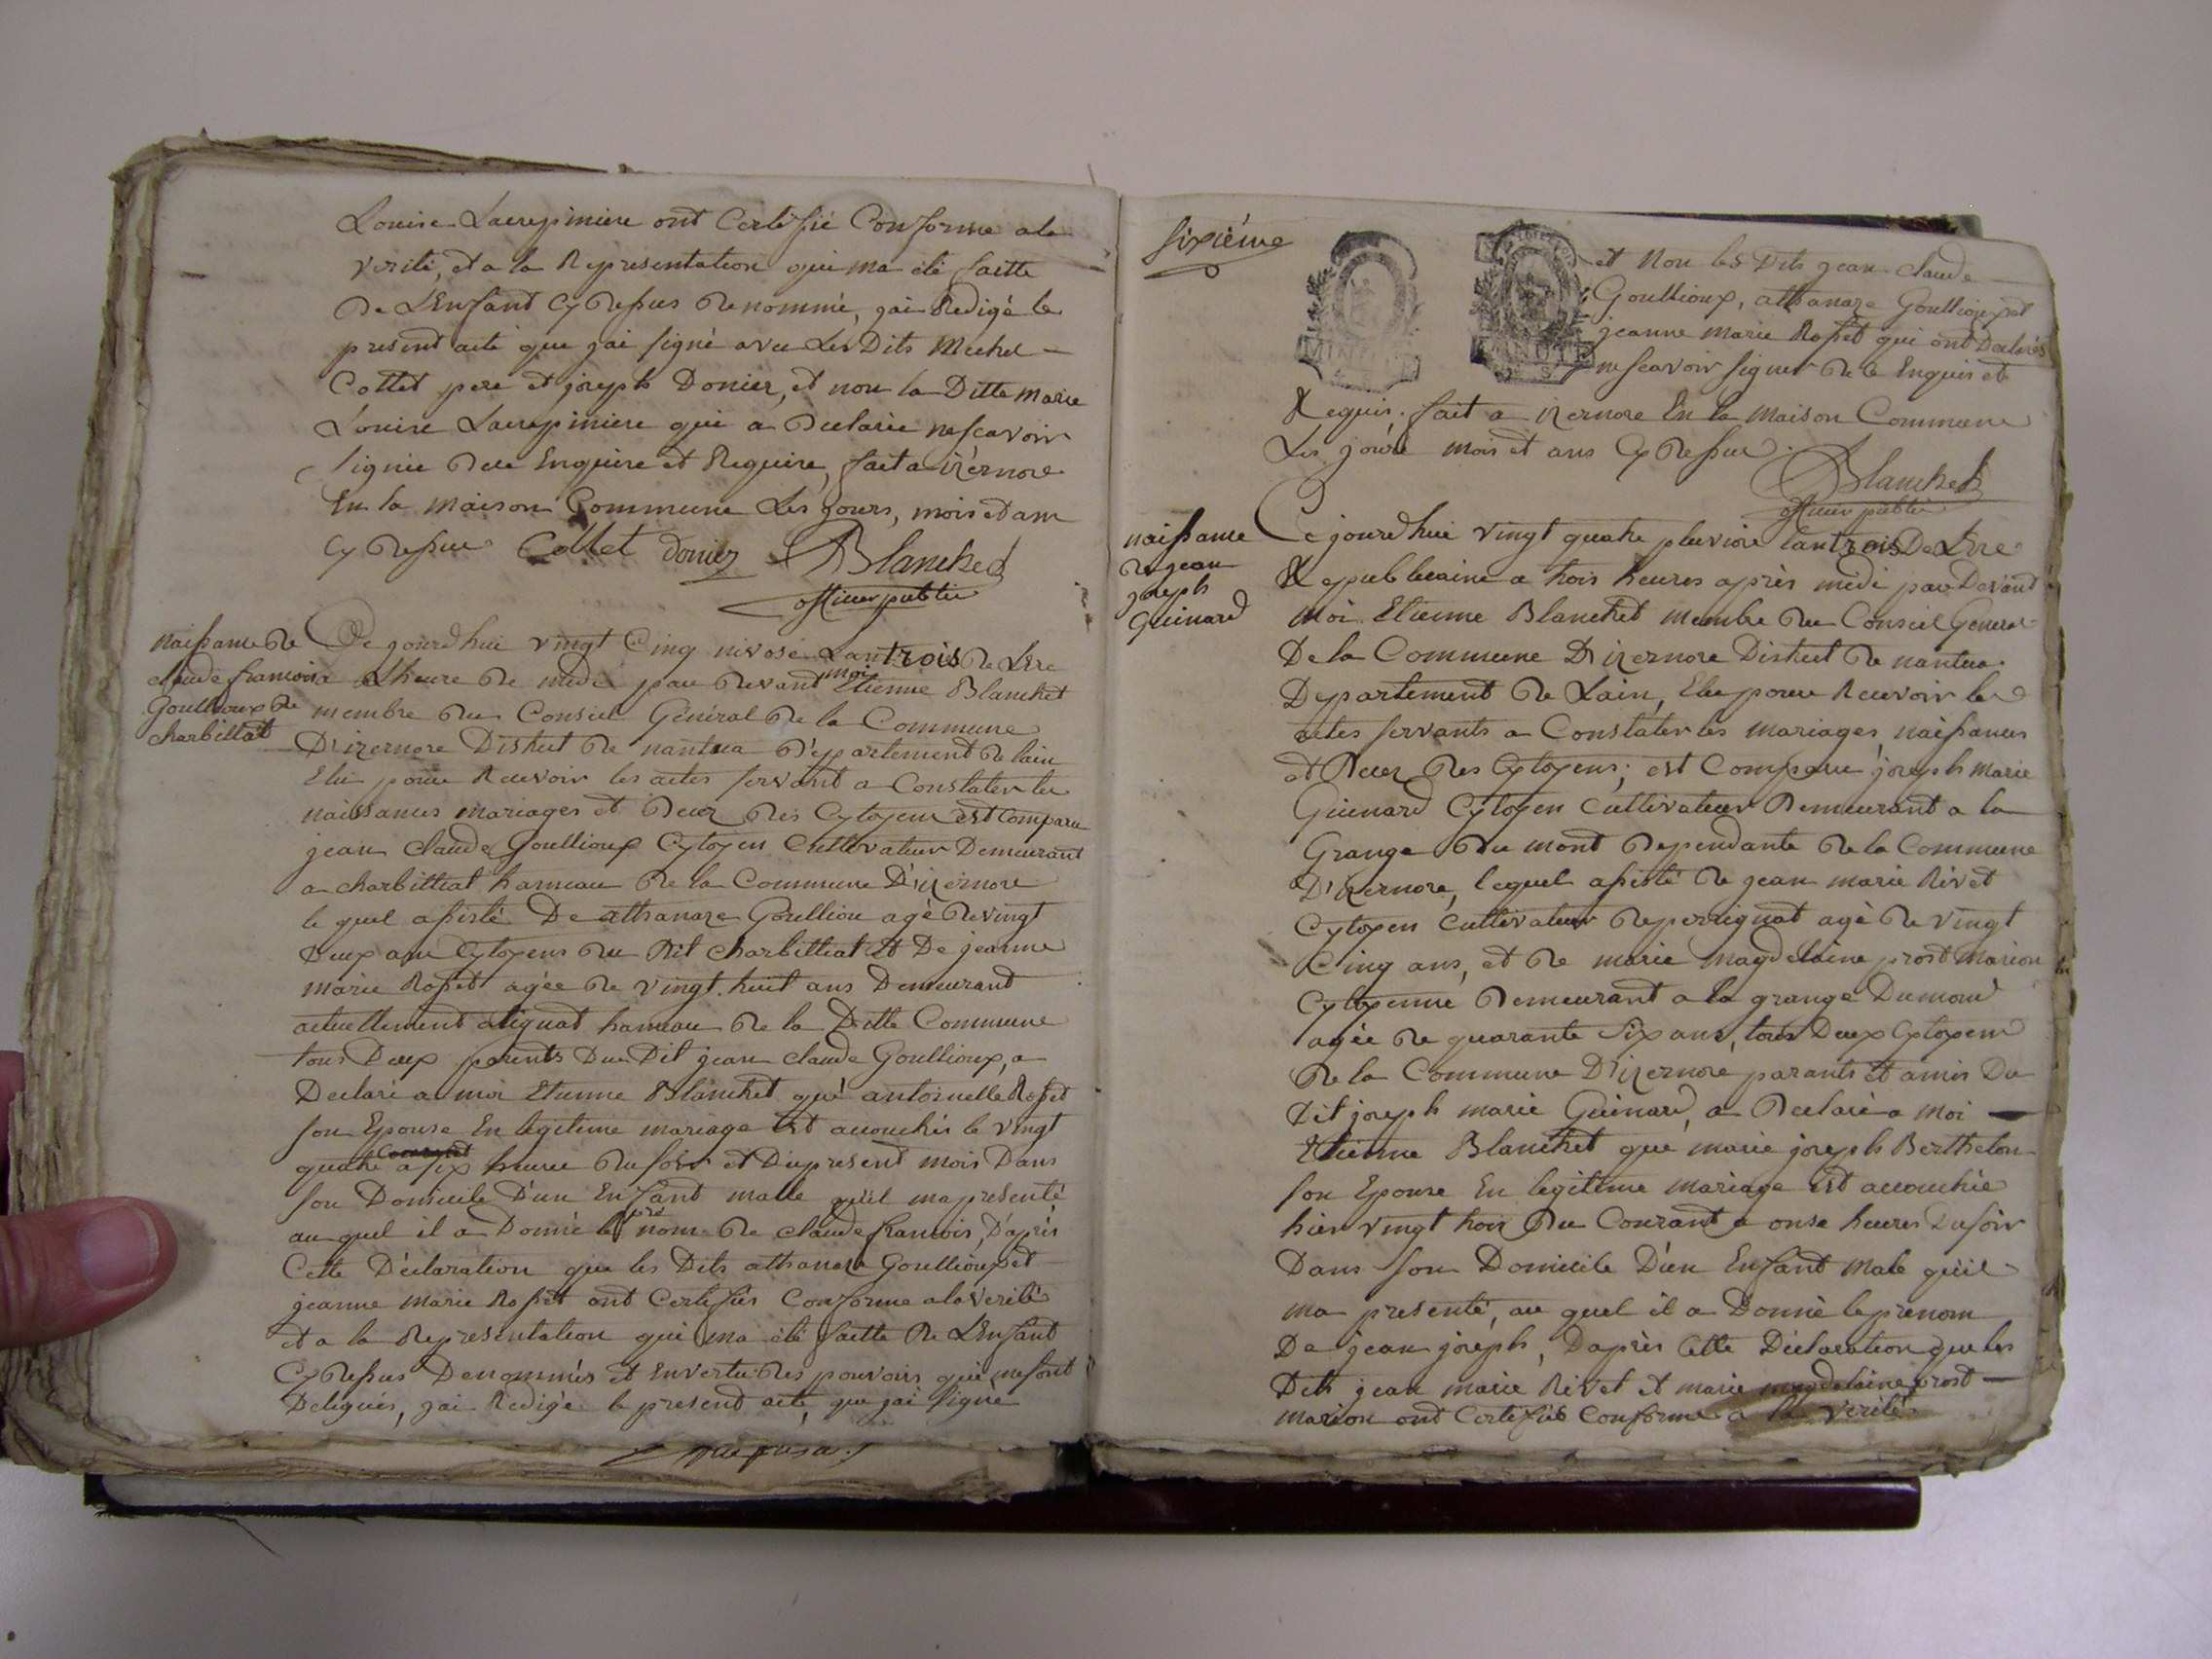 Louise Lacrepiniere ont Certifié Conforme ala
verité, et a la Representation qui ma été faitte
De L'Enfant Cy Dessus Denommé, jai Redigé le
present acte que jai signé avec Les Dits Michel
Collet pere et joseph Donier, et non la Ditte Marie
Louise Lacrepiniere qui a Declarée ne scavoir
signée Dece Enquise et Requise, fait a izernore
En la maison Commune Les jours, mois et ans
Cy Dessus Collet donier Blanchet
officier public
naissance De
claude francois
Goullioux De
charbillat
Ce jourdhui vingt Cinq nivose Lan trois De Lere
a Lheure De midi par devant moi Etienne Blanchet
membre Du Conseil Général De la Commune
D'izernore District De nantua Département De lain
Elu pour Recevoir les actes servant a Constater les
naissances mariages et Deces Des Cytoyens est Comparu
jean claude Goullioux Cytoyen Cultivateur Demeurant
a charbilliat hameau De la Commune D'izernore
le quel assisté De athanaze Goulliou agé De vingt
Deux ans Cytoyens Du Dit charbilliat et De jeanne
marie Rosset agée De vingt huit ans Demeurant
actuellement a tignat hameau De la Ditte Commune
tous Deux parents Du Dit jean claude Goullioux, a
Declaré a moi Etienne Blanchet que antoinette Rosset
son Epouse En legitime mariage Est accouchée le vingt
quatre a six heures Du soir et Du present mois Dans
son Domicile D'un Enfant malle qu'il ma presenté
au quel il a Donné le pré nom De claude francois, D'après
Cette Déclaration que les Dits athanaze Goullioux et
jeanne marie Rosset ont Certifiés Conforme a la Verité
et a la Representation qui ma été faitte De L'Enfant
Cy Dessus Denommés et Envertu Des pouvoirs qui me sont
Delegués, jai Redigé le present acte, que jai signé
sixiéme
et Non les Dits jean claude
Goullioux, athanaze Goullioux et
jeanne marie Rosset qui ont Declarés
ne scavoir signer De ce Enquis et
Requis. fait a izernore En la maison Commune
Les jours mois et ans Cy Dessus.
Blanchet
officier public
naissance
De jean
joseph
Guinard
Ce jourdhui vingt quatre pluviose lan trois De Lere
Republicaine a trois heures après midi par Devant
moi Etienne Blanchet membre Du Conseil General
De la Commune D'izernore District De nantua
Departement De Lain, Elu pour Recevoir les
actes servants a Constater les mariages, naissances
et Deces Des Cytoyens; est Comparu joseph marie
Guinard Cytoyen Cultivateur Demeurant a la
Grange Du mont Dependante De la Commune
D'izernore, lequel assisté De jean marie Rivet
Cytoyen Cultivateur De perrignat agé De vingt
Cinq ans, et De marie magdelaine prost marion
Cytoyenne Demeurant a la grange Dumont
agée De quarante six ans, tous Deux Cytoyens
De la Commune D'izernore parants et amis Du
Dit joseph marie Guinard, a Declaré a moi
Etienne Blanchet que marie joseph Berthelon
son Epouse En legitime mariage est accouchée
hier vingt trois Du Courant a onse heures Du soir
Dans son Domicile D'un Enfant Male qu'il
ma presenté, au quel il a Donné le prenom
De jean joseph, Daprès Cette Déclaration que les
Dits jean marie Rivet et marie magdelaine prost
marion ont Certifiés Conforme a la verité